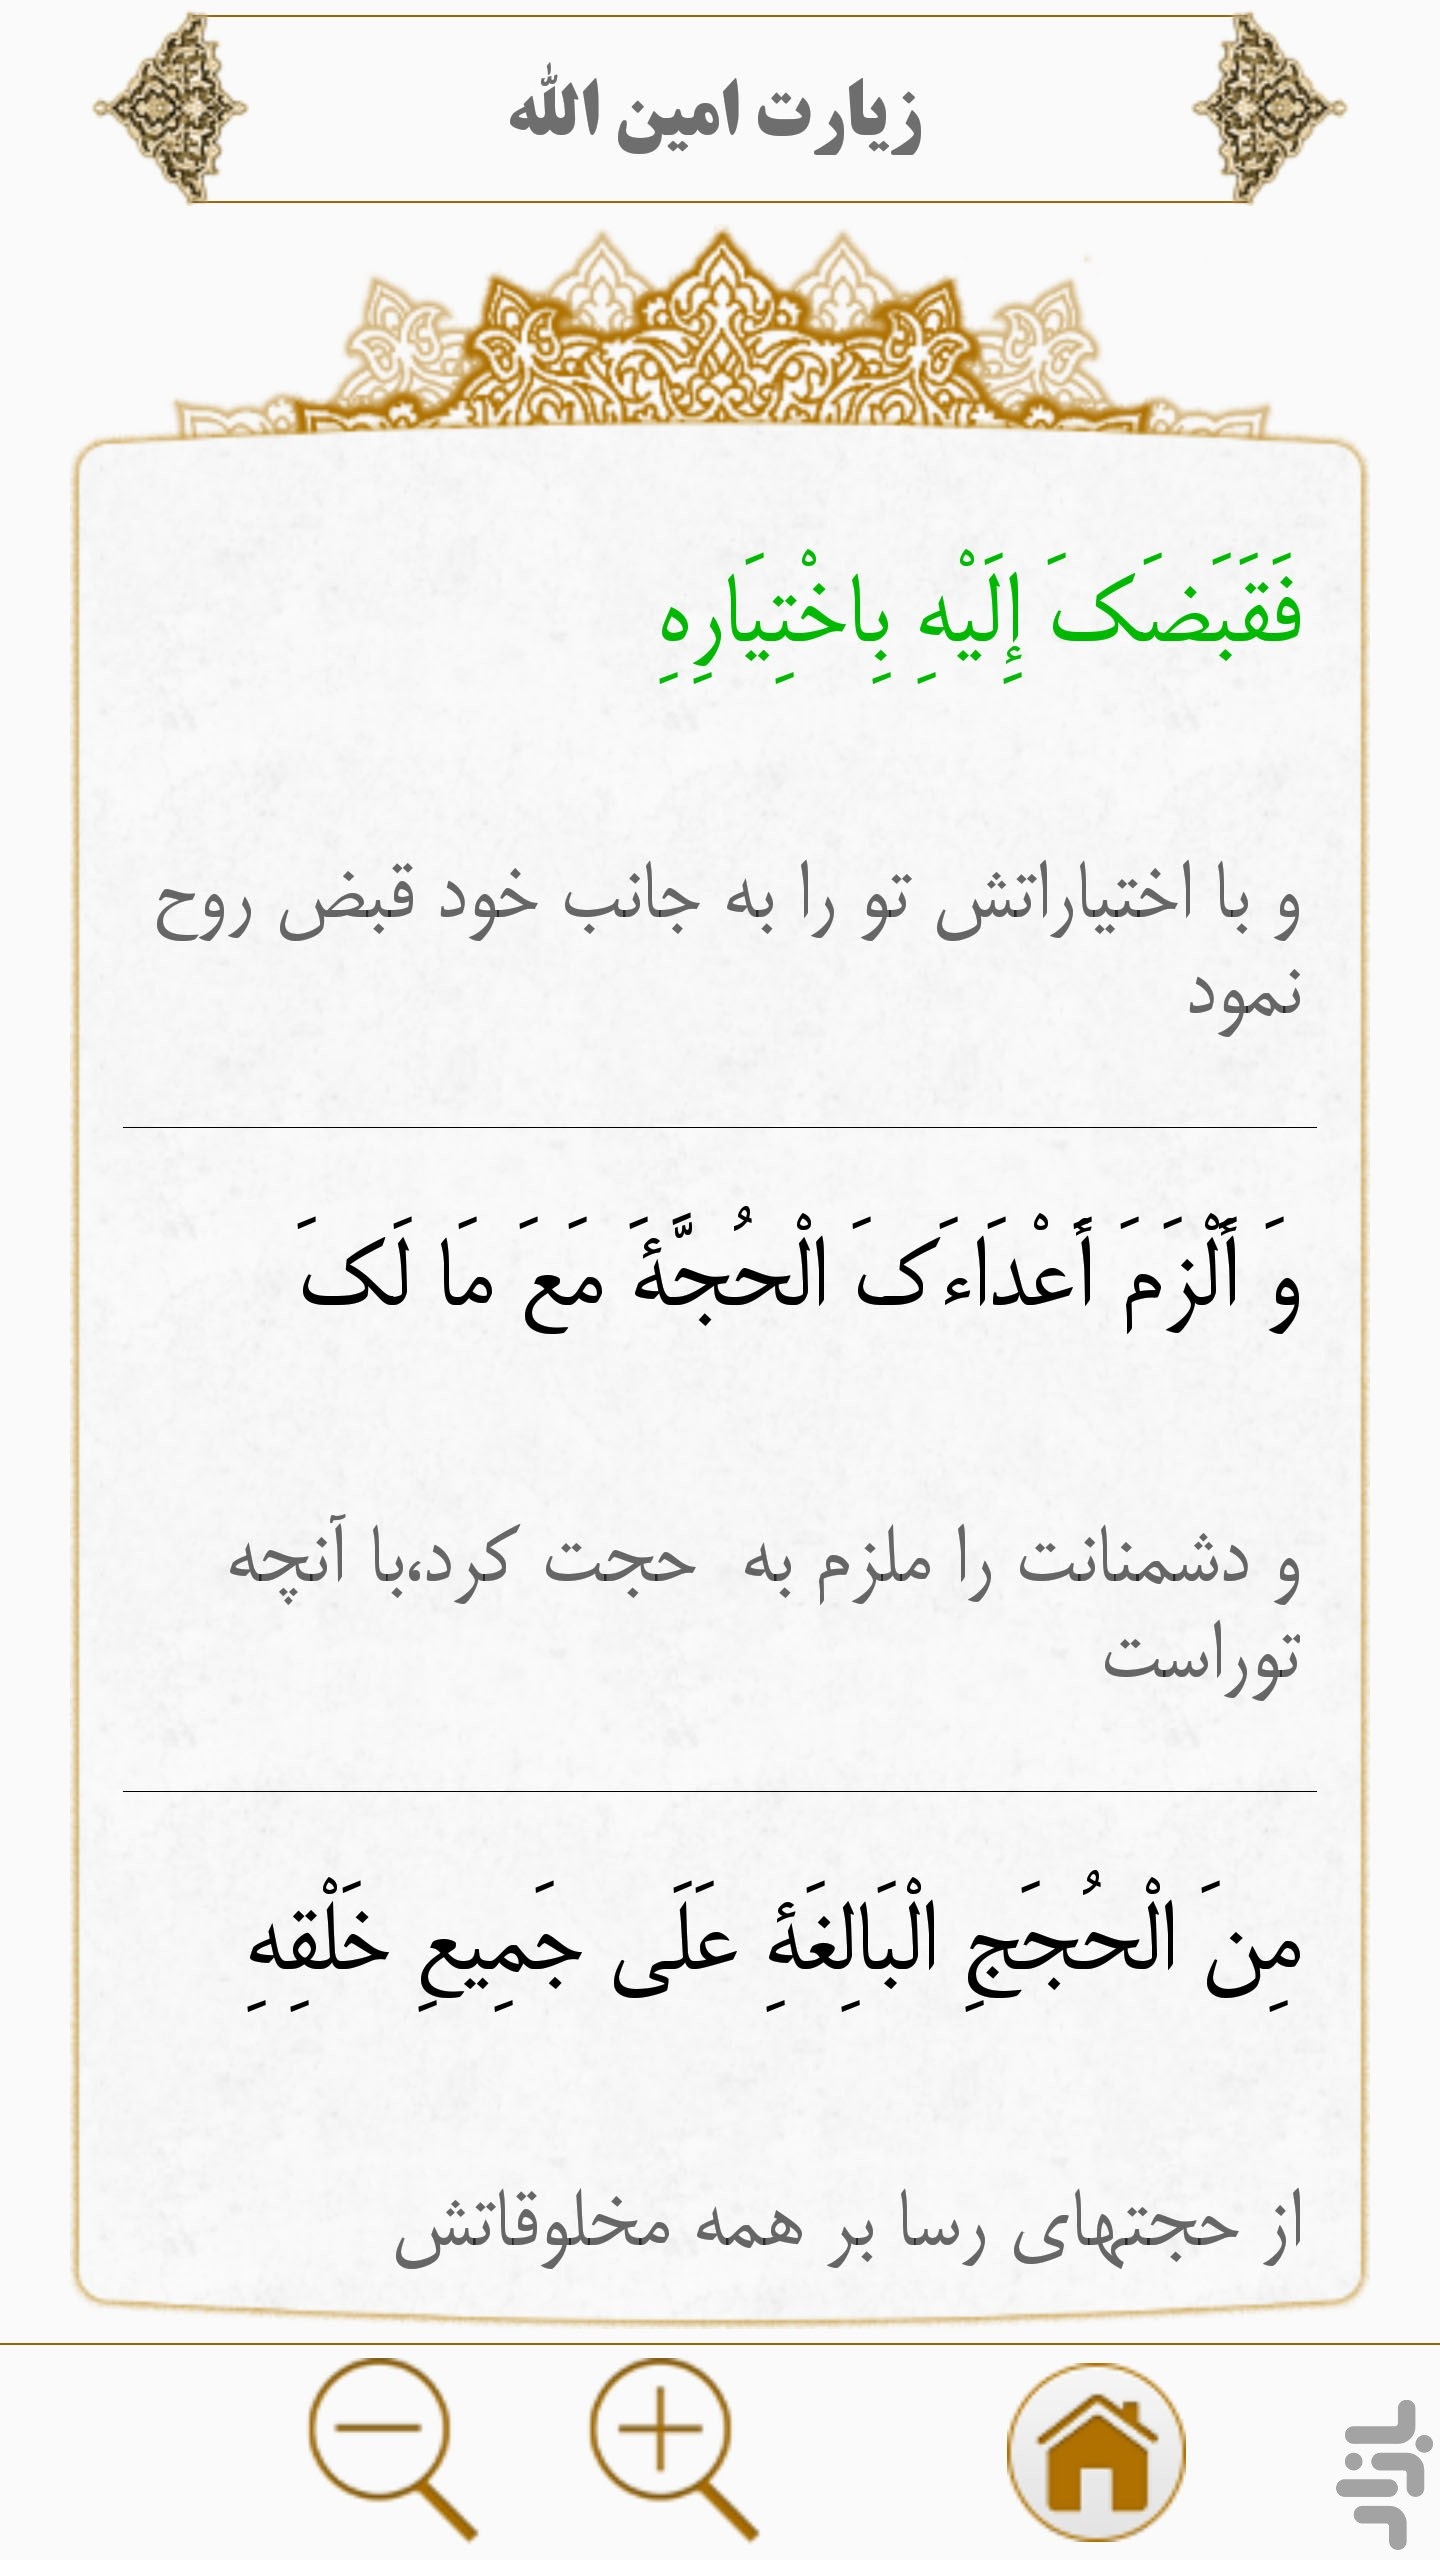 زیارت امین الله
فَقَبَضَکَ إِلَیْهِ بِاخْتِیَارِهِ
و با اختیاراتش تو را به جانب خود قبض روح
نمود
وَ أَلْزَمَ أَعْدَاءَکَ الْحُجَّةَ مَعَ مَا لَکَ
و دشمنانت را ملزم به حجت کرد،با آنچه
توراست
مِنَ الْحُجَجِ الْبَالِغَةِ عَلَی جَمِیعِ خَلْقِهِ
از حجتهای رسا بر همه مخلوقاتش
بازار